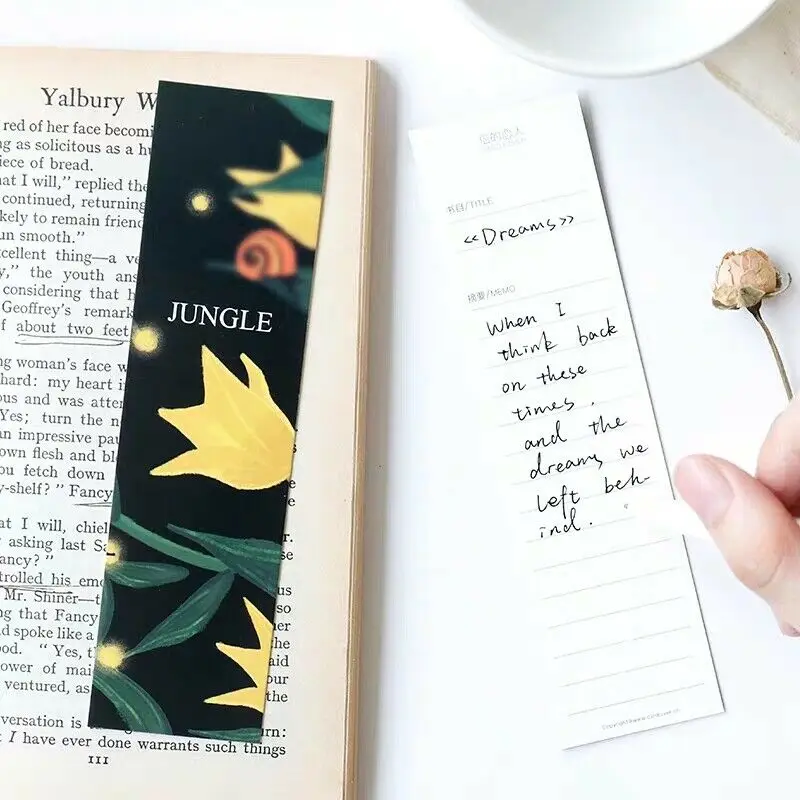 Yalbury W
red of her face becomi
ng as solicitous as a h
iece of bread.
at I will," replied the
continued, returning
kely to remain frien
un smooth."
cellent thing—a ve
y," the youth ans
considering that h
Geoffrey's remark
f about two feet
ng woman's face w
hard: my heart i
ous and was atten
Yes; turn the n
an impressive pau
own flesh and bl
ou fetch down
y-shelf?" Fancy
at I will, chiel
asking last Sa
ancy?"
trolled his emo
Mr. Shiner—t
ng that Fancy
d spoke like a
ood. "Yes, t
ower of mai
ventured, as
versation is
I have ever done warrants such things
III
JUNGLE
r.
se
us
so
her
the
aid
our
the
urn:
书目/TITLE
<<Dreams>>
摘要/MEMO
When I
think back
on these
times.
and the
dreams we
left beh-
ind.